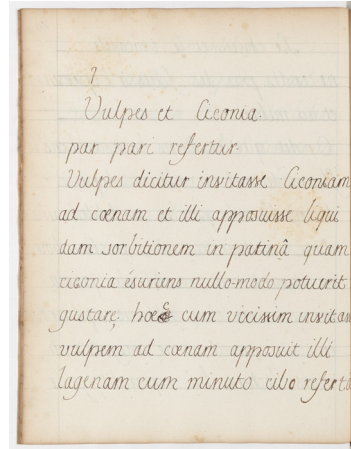 1
Vulpes et Ciconia.
par pari refertur.
Vulpes dicitur invitasse Ciconiam
ad cœnam et illi apposuisse liqui
dam sorbitionem in patinâ quam
ciconia ésuriens nullo-modo potuerit
gustare; hœc cum vicissim invitas
vulpem ad cœnam apposuit illi
lagenam cum minuto cibo referta